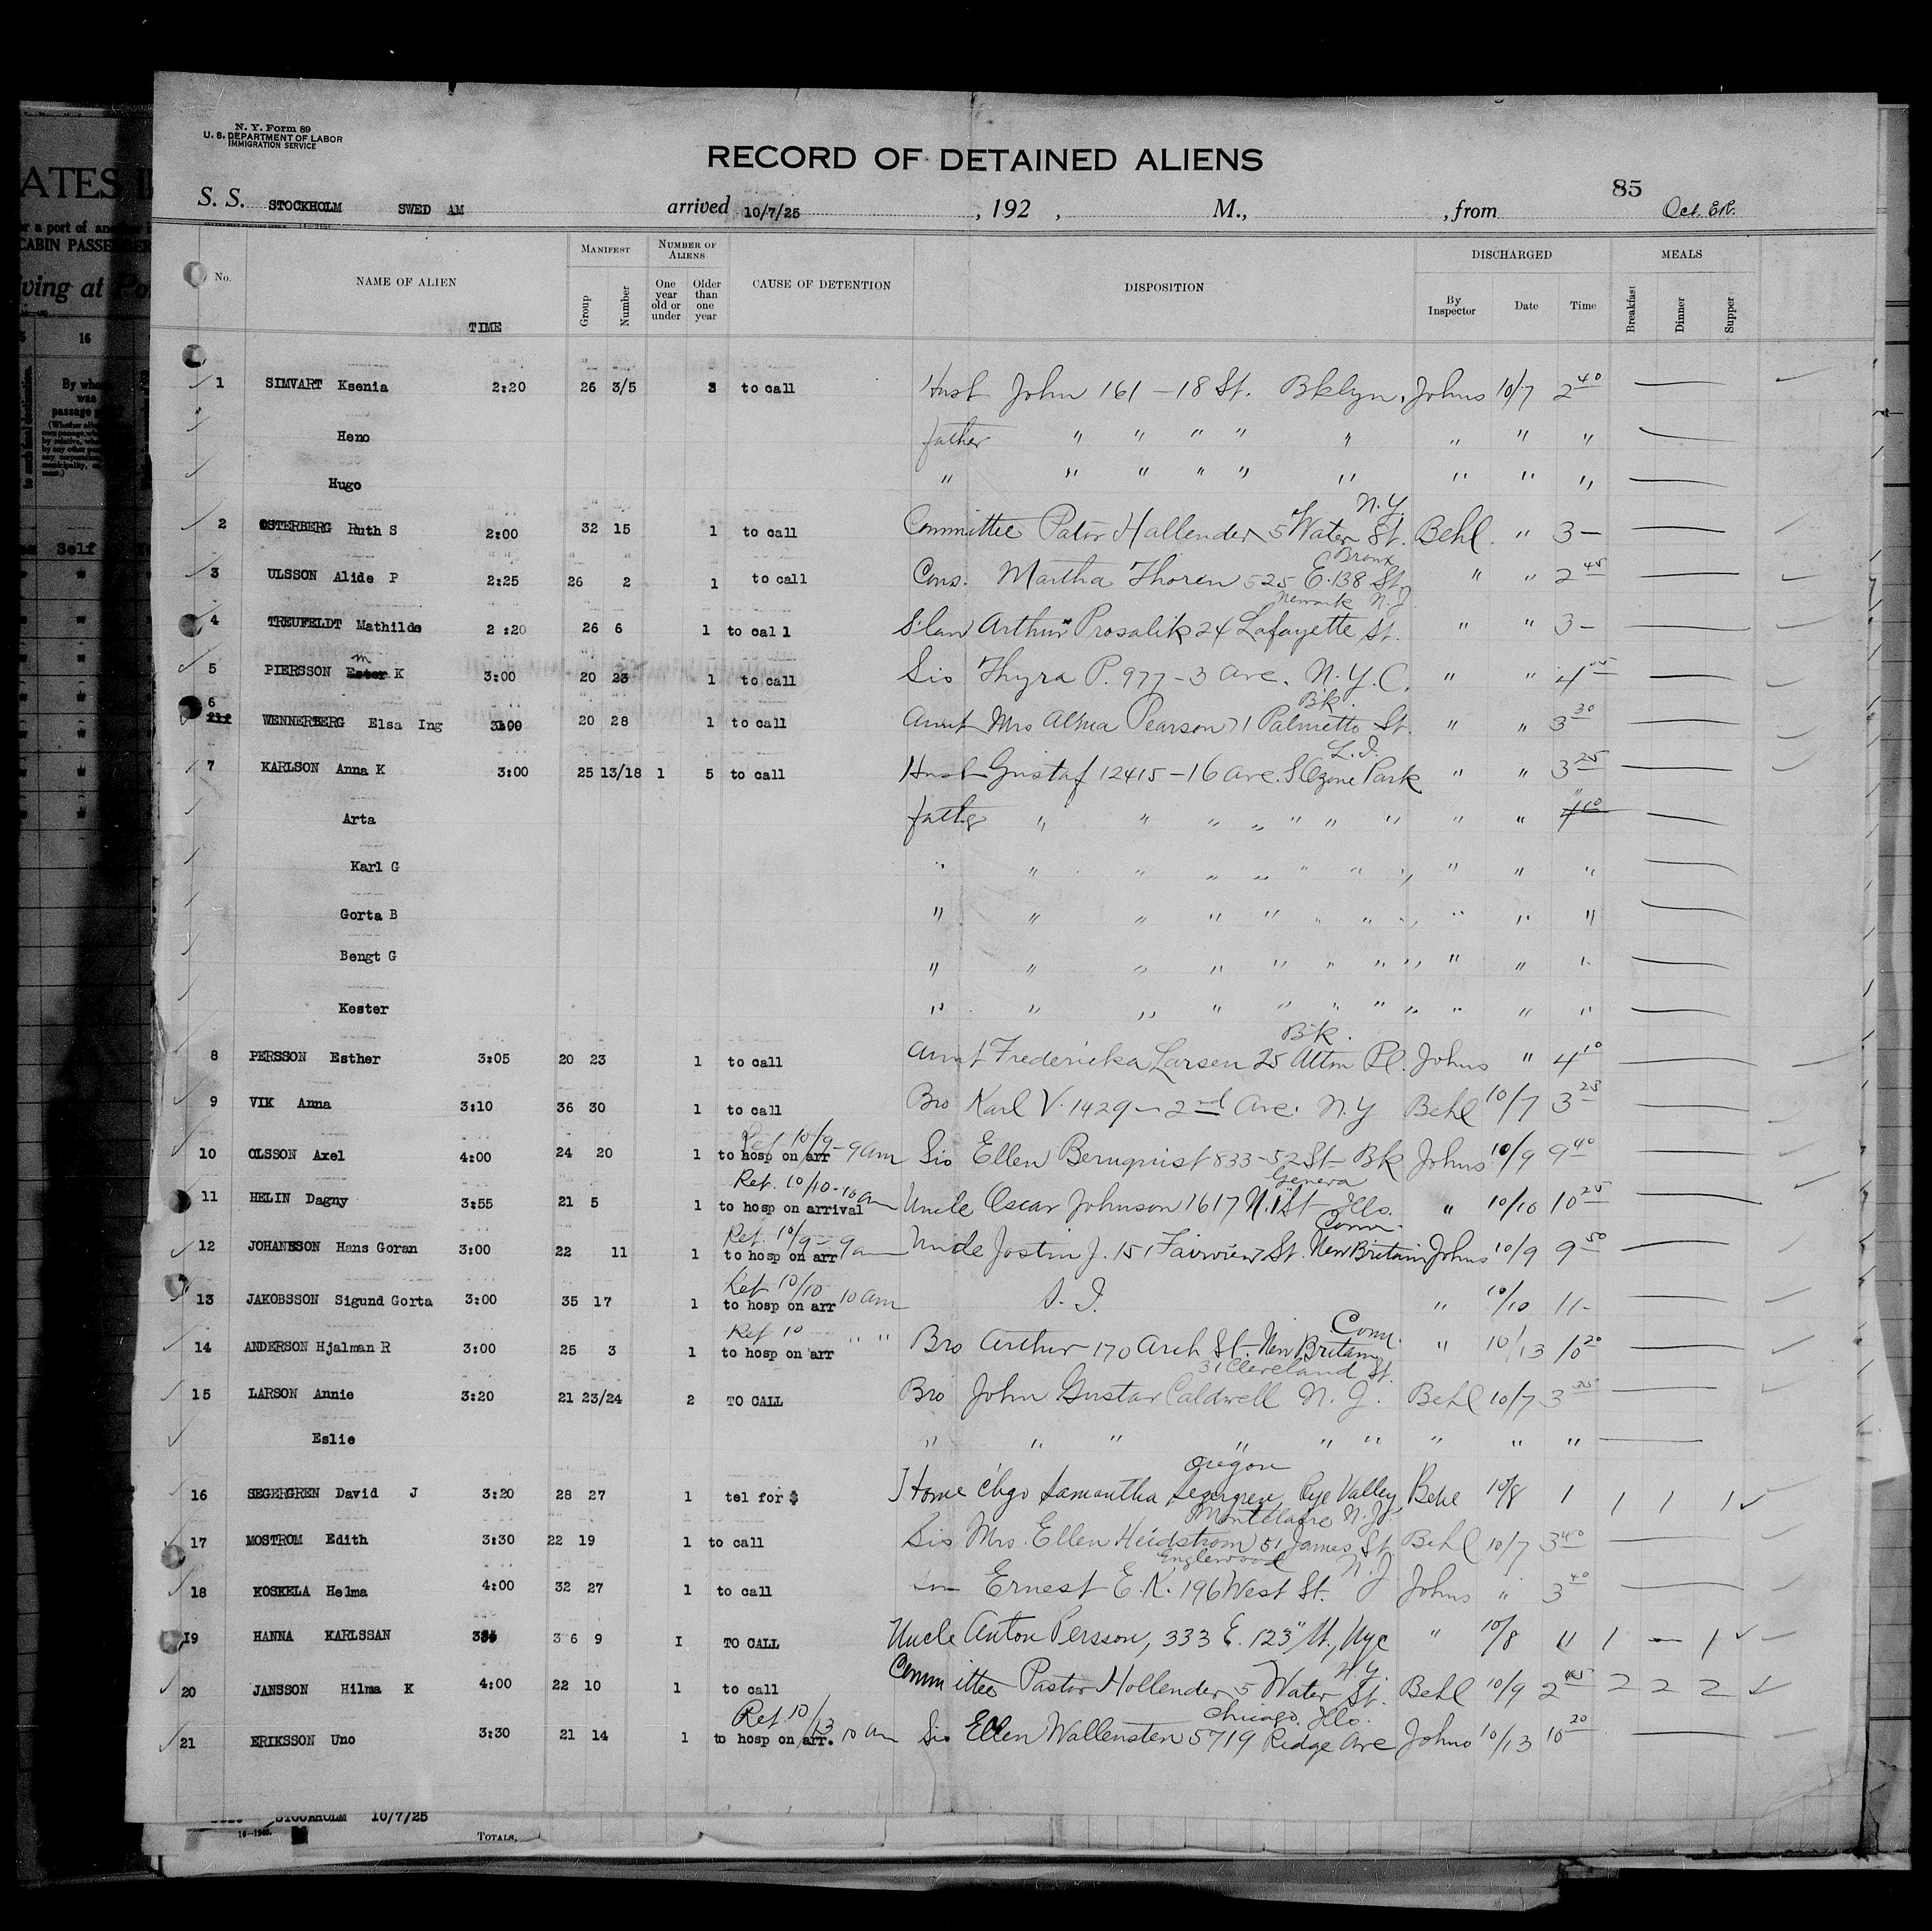 N. Y. Form 89
U. S. DEPARTMENT OF LABOR
IMMIGRATION SERVICE
RECORD OF DETAINED ALIENS
85
S. S. STOCKHOLM SWED AM arrived 10/7/25, 192 , M., , from Oct. E.R.
No. NAME OF ALIEN TIME MANIFEST Group Number NUMBER OF ALIENS One year old or under Older than one year CAUSE OF DETENTION DISPOSITION DISCHARGED By Inspector Date Time MEALS Breakfast Dinner Supper
1 SIMVART Ksenia 2:20 26 3/5 3 to call Husb John 161 - 18 St. Bklyn. Johns 10/7 2 40
Heno father " " " " " " " "
Hugo " " " " " " " " "
N.Y.
2 OSTERBERG Ruth S 2:00 32 15 1 to call Committee Pator Hallender 5 Water St. Behl. " 3 -
Bronx
3 ULSSON Alide P 2:25 26 2 1 to call Cons. Martha Thoren 525 E. 138 St " " 2 45
Newark N.J.
4 TREUFELDT Mathilde 2:20 26 6 1 to call S'law Arthur Prosalik 24 Lafayette St. " " 3 -
m
5 PIERSSON Ester K 3:00 20 23 1 to call Sis Thyra P. 977 - 3 Ave. N.Y.C. " " 4
Bk.
6 WENNERBERG Elsa Ing 3:00 20 28 1 to call Aunt Mrs Alma Pearson 71 Palmetto St. " " 3 30
L.I.
7 KARLSON Anna K 3:00 25 13/18 1 5 to call Husb Gustaf 12415 - 16 Ave. S Ozone Park " " 3 25
Arta father " " " " " " " " " "
Karl G " " " " " " " " " " "
Gorta B " " " " " " " " " " "
Bengt G " " " " " " " " " " "
Kester " " " " " " " " " " "
Bk.
8 PERSSON Esther 3:05 20 23 1 to call Aunt Fredericka Larsen 25 Pl. Johns " 4 10
9 VIK Anna 3:10 36 30 1 to call Bro Karl V. 1429 - 2nd Ave. N.Y Behl 10/7 3 25
Ret 10/9 - 9 am
10 OLSSON Axel 4:00 24 20 1 to hosp on arr Sis Ellen Bernquist 833 - 52 St - Bk Johns 10/9 9 40
Ret. 10/10 - 10 am Geneva
11 HELIN Dagny 3:55 21 5 1 to hosp on arrival Uncle Oscar Johnson 1617 N. 1 St Ills. " 10/10 10 25
Ret. 10/9 - 9 am Conn.
12 JOHANSSON Hans Goran 3:00 22 11 1 to hosp on arr Uncle Jostin J. 151 Fairview St. New Britain Johns 10/9 9 50
Ret 10/10 10 am
13 JAKOBSSON Sigund Gorta 3:00 35 17 1 to hosp on arr S. I. " 10/10 11 -
Ret 10 " " Conn.
14 ANDERSON Hjalman R 3:00 25 3 1 to hosp on arr Bro Arthur 170 Arch St. New Britain " 10/13 10 20
31 Cleveland St.
15 LARSON Annie 3:20 21 23/24 2 TO CALL Bro John Gustav Caldwell N. J. Behl 10/7 3 35
Eslie " " " " " " " " "
Oregon
16 SEGERGREN David J 3:20 28 27 1 tel for $ Home chgo Samantha Segergren, Rye Valley Behl 10/8 1 1 1 1
Montclaire N.J.
17 MOSTROM Edith 3:30 22 19 1 to call Sis Mrs. Ellen Heidstrom 51 James St Behl 10/7 3 40
Englewood N.J
18 KOSKELA Helma 4:00 32 27 1 to call Ernest E.K. 196 West St. Johns " 3 40
19 HANNA KARLSSAN 36 9 I TO CALL Uncle Anton Persson, 333 E. 123" St, Nyc " 10/8 11 1 - 1
N.Y.
20 JANSSON Hilma K 4:00 22 10 1 to call Committee Pastor Hollender 5 Water St. Behl 10/9 2 45 2 2 2
Ret 10/13 10 am Chicago. Ills.
21 ERIKSSON Uno 3:30 21 14 1 to hosp on arr. Sis Ellen Wallensten 5719 Ridge Ave Johns 10/13 10 20
STOCKHOLM 10/7/25
TOTALS,